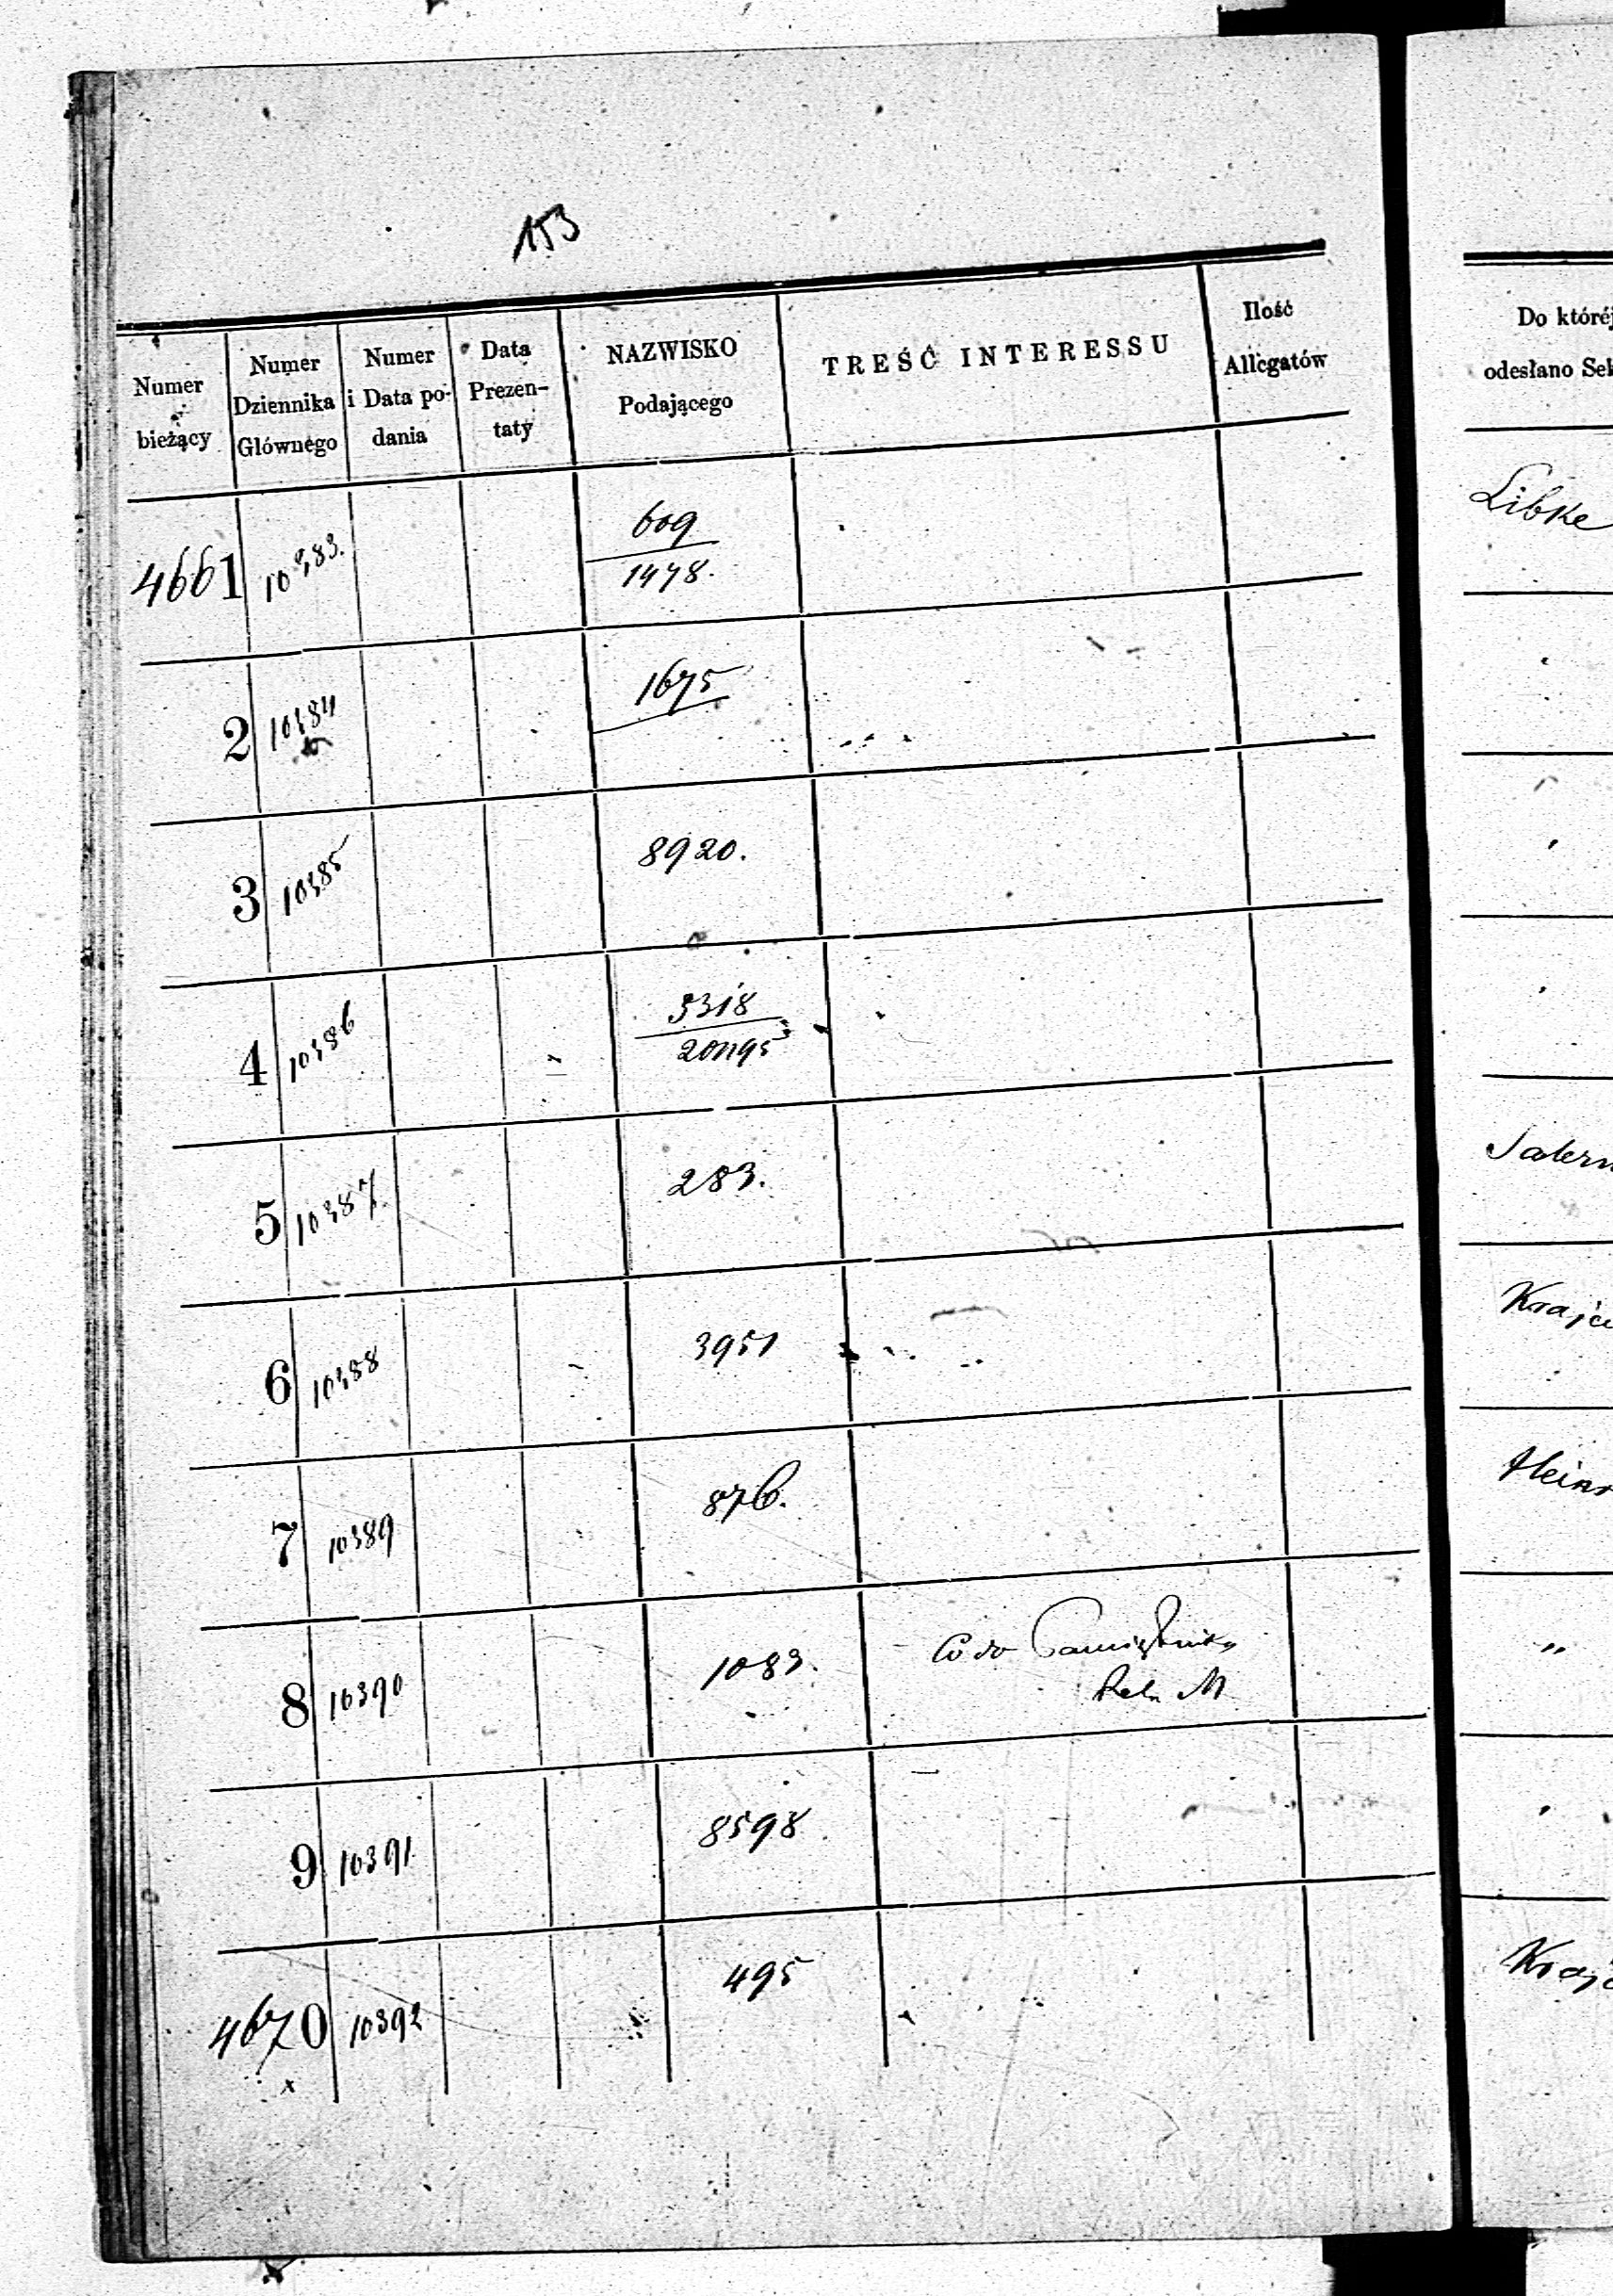 153
Numer bieżący
Numer Dziennika Głównego
Numer i Data po- dania
Data Prezen- taty
NAZWISKO Podającego
TREŚĆ INTERESSU
Ilość Allegatów
Do któréj
odesłano Sek
4661 10383. 609
1478.
Libke
2 10384 1675
3 10385 8920.
4 10386 3318
5 10387. 283.
6 10388 3951
Kraj
7 10389 876.
Hein
8 10390 1083. Co do
M
„
9 10391 8598
4670 10392 495
Kraj
x